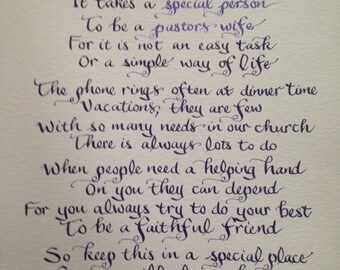 It takes a special person
To be a pastors wife
For it is not an easy task
Or a simple way of life
The phone rings often at dinner time
Vacations, they are few
With so many needs in our church
There is always lots to do
When people need a helping hand
On you they can depend
For you always try to do your best
To be a faithful friend
So keep this in a special place